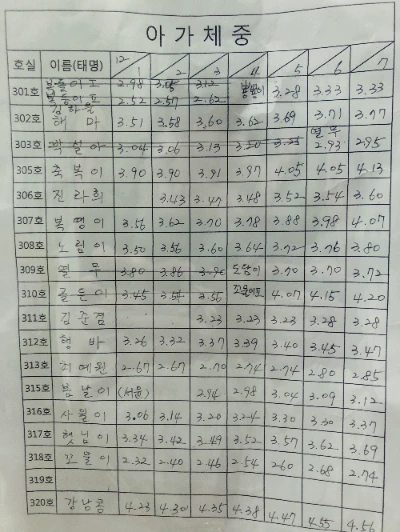 아가체중
호실 이름(태명) 12/1 2 3 4 5 6 7
301호 2.98 3.05 3.12 봄봄이 3.28 3.33 3.33
2.52 2.57 2.62
302호 해마 3.51 3.58 3.60 3.62 3.69 3.71 3.77
303호 3.04 3.06 3.13 3.20 3.25 열무 2.93 2.95
305호 축복이 3.90 3.90 3.91 3.97 4.05 4.05 4.13
306호 진라희 3.43 3.47 3.48 3.52 3.54 3.60
307호 복덩이 3.56 3.62 3.70 3.78 3.88 3.98 4.07
308호 느림이 3.50 3.56 3.60 3.64 3.72 3.76 3.80
309호 열무 3.80 3.86 3.90 도담이 3.70 3.70 3.72
310호 골든이 3.45 3.54 3.56 4.07 4.15 4.20
311호 김준겸 3.23 3.23 3.23 3.28 3.28
312호 행바 3.26 3.32 3.37 3.39 3.40 3.45 3.47
313호 최예원 2.67 2.67 2.70 2.74 2.74 2.80 2.85
315호 봄날이 (서울) 2.94 2.98 3.04 3.09 3.12
316호 사월이 3.06 3.14 3.20 3.24 3.30 3.30 3.37
317호 햇님이 3.34 3.42 3.49 3.52 3.57 3.62 3.69
318호 꼬물이 2.32 2.40 2.46 2.54 2.60 2.68 2.74
319호
320호 강낭콩 4.23 4.30 4.35 4.38 4.47 4.55 4.56